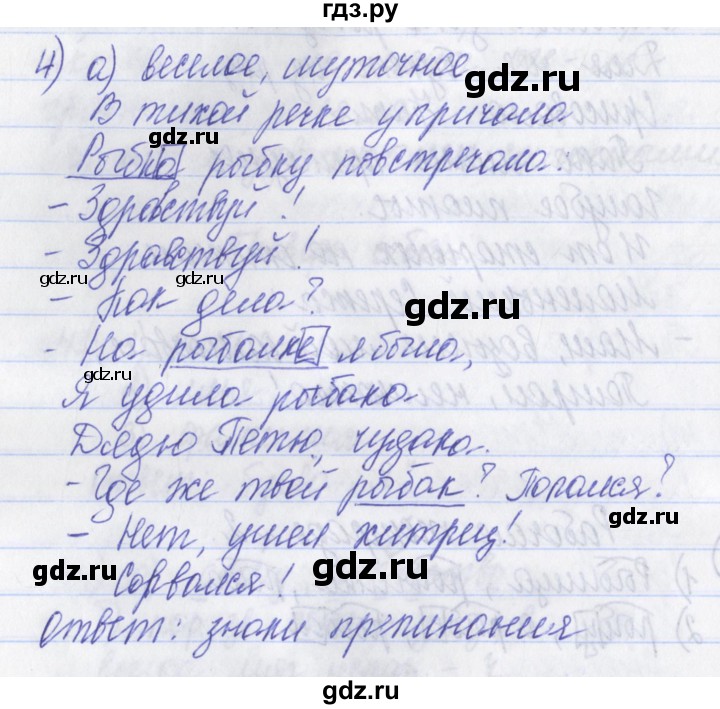 гдз.ру
4) а) веселое, шуточное
В тихой речке у причала
Рыбка рыбку повстречала.
- Здравствуй!
- Здравствуй!
- Как дела?
- На рыбалке я была,
Я удила рыбака
Дядю Петю, чудака.
- Где же твой рыбак? Попался?
- Нет, ушел хитрец!
Сорвался!
Ответ: знаки препинания
gdz.ru
gdz.ru
gdz.ru
gdz.ru
gdz.ru
gdz.ru
gdz.ru
gdz.ru
gdz.ru
gdz.ru